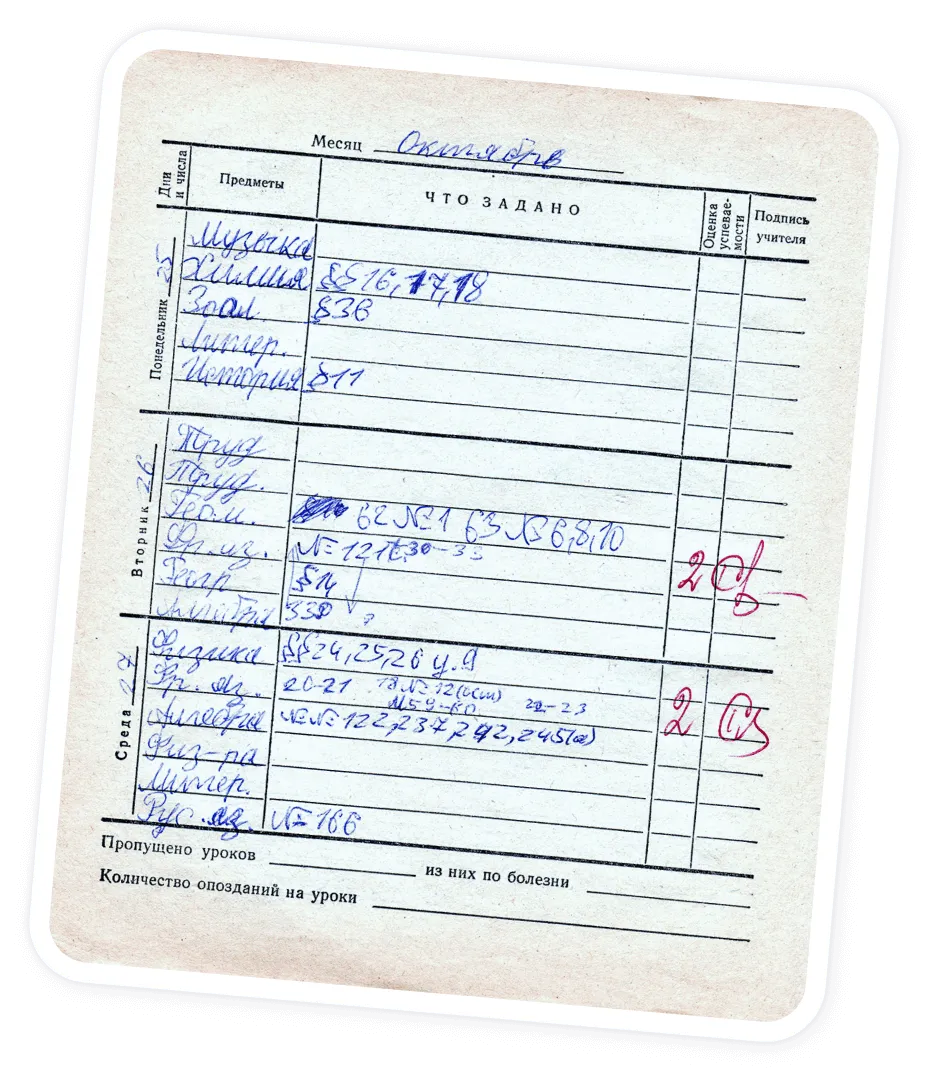 Месяц Октябрь
Дни и числа
Предметы
ЧТО ЗАДАНО
Оценка успевае-мости
Подпись учителя
Понедельник 25
Музыка
Химия §§16, 17, 18
Зоол §36
Литер.
История §11
Вторник 26
Труд
Труд.
Геом. 62 №1 63 №6,8,10
Фр. яз. №121 30-33 2
Геогр §14
Алгебра 339
Среда 27
Физика §§24, 25, 26 у.9
Фр. яз. 20-21 18 №12(уст) 22-23
Алгебра №№122, 237, 242, 245(а) 2
Физ-ра
Литер.
Рус. яз. №166
Пропущено уроков из них по болезни
Количество опозданий на уроки